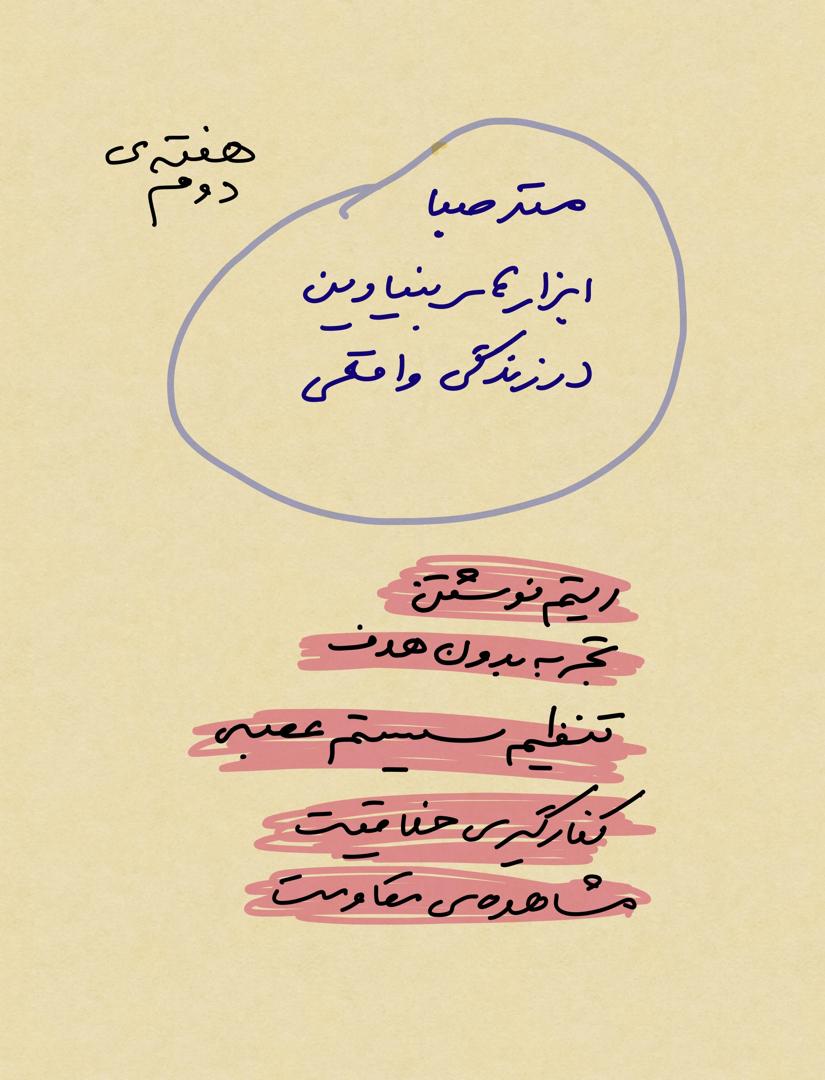 هفته‌ی
دوم
صبا
ابزارهای بنیادین
در زندگی واقعی
ریتم نوشتن
تجربه بدون هدف
تنظیم سیستم عصبی
خلاقیت
مشاهده‌ی مقاومت